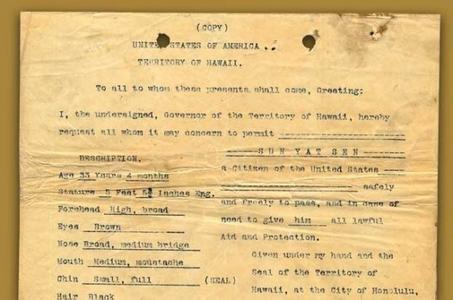 (COPY)
UNITED STATES OF AMERICA ..
TERRITORY OF HAWAII.
To all to whom these presents shall come, Greeting:
I, the undersigned, Governor of the Territory of Hawaii, hereby
request all whom it may concern to permit
SUN YAT SEN
DESCRIPTION.
a Citizen of the United States
Age 33 Years 4 months
safely
Stature 5 Feet Inches Eng.
and freely to pass, and in case of
Forehead High, broad
need to give him all lawful
Eyes Brown
Aid and Protection.
Nose Broad, medium bridge
Given under my hand and the
Mouth Medium, moustache
Seal of the Territory of
Chin Small, full (SEAL)
Hawaii, at the City of Honolulu,
Hair Black